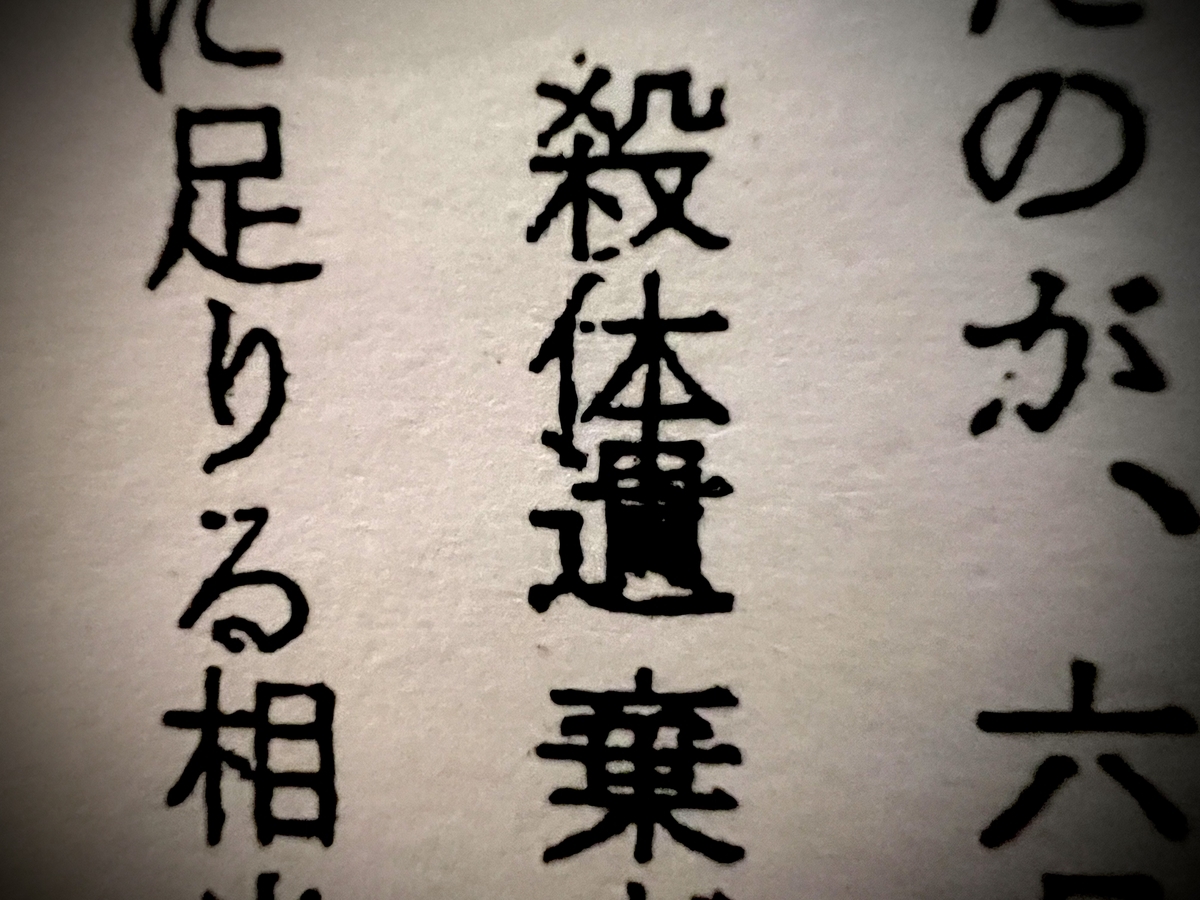 のが、六
殺体遺棄
足りる相